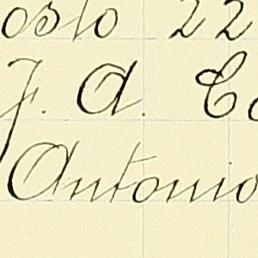 osto 22
F. A. Co
Antonio